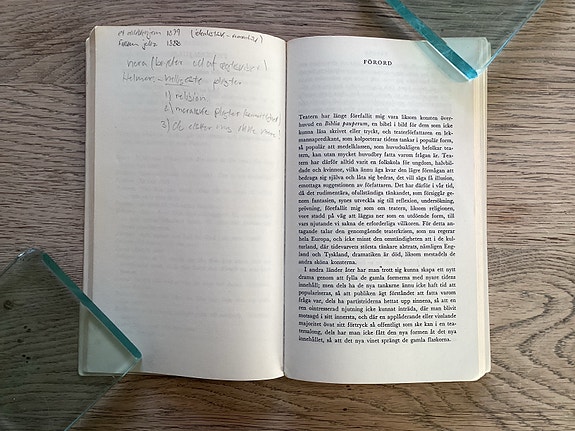 et dukkehjem 1879
Frøken Julie 1888
1) religion
2) moralske pligter
FÖRORD
Teatern har länge förefallit mig vara liksom konsten över-
huvud en Biblia pauperum, en bibel i bild för dem som icke
kunna läsa skrivet eller tryckt, och teaterförfattaren en lek-
mannapredikant, som kolporterar tidens tankar i populär form,
så populär att medelklassen, som huvudsakligen befolkar tea-
tern, kan utan mycket huvudbry fatta varom frågan är. Tea-
tern har därför alltid varit en folkskola för ungdom, halvbil-
dade och kvinnor, vilka ännu äga kvar den lägre förmågan att
bedraga sig själva och låta sig bedras, det vill säga få illusion,
emottaga suggestionen av författaren. Det har därför i vår tid,
då det rudimentära, ofullständiga tänkandet, som försiggår ge-
nom fantasien, synes utveckla sig till reflexion, undersökning,
prövning, förefallit mig som om teatern, liksom religionen,
vore stadd på väg att läggas ner som en utdöende form, till
vars njutande vi sakna de erforderliga villkoren. För detta an-
tagande talar den genomgående teaterkrisen, som nu regerar
hela Europa, och icke minst den omständigheten att i de kul-
turland, där tidevarvets största tänkare alstrats, nämligen Eng-
land och Tyskland, dramatiken är död, liksom mestadels de
andra sköna konsterna.
I andra länder åter har man trott sig kunna skapa ett nytt
drama genom att fylla de gamla formerna med nyare tidens
innehåll; men dels ha de nya tankarne ännu icke haft tid att
populariseras, så att publiken ägt förståndet att fatta varom
fråga var, dels ha partistriderna hettat upp sinnena, så att en
ren ointresserad njutning icke kunnat inträda, där man blivit
motsagd i sitt innersta, och där en applåderande eller visslande
majoritet övat sitt förtryck så offentligt som ske kan i en tea-
tersalong, dels har man icke fått den nya formen åt det nya
innehållet, så att det nya vinet sprängt de gamla flaskorna.